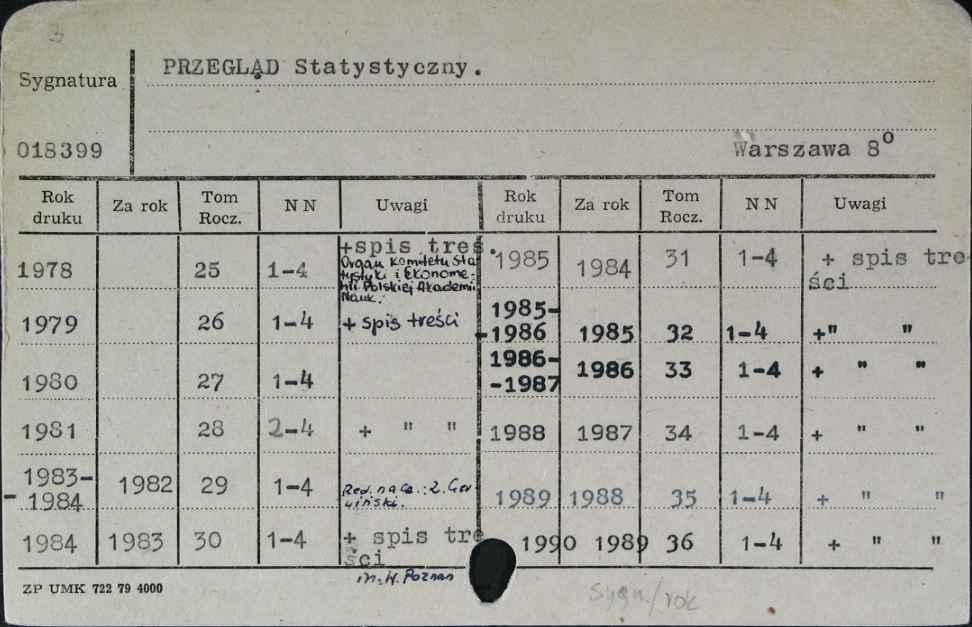 3
Sygnatura
PRZEGLĄD Statystyczny.
018399
Warszawa 8°
Rok druku Za rok Tom Rocz. N N Uwagi Rok druku Za rok Tom Rocz. N N Uwagi
1978 25 1-4 +spis treś.
Organ Komitetu Sta
tystyki i Ekonome-
trii Polskiej Akademii
Nauk.
1979 26 1-4 + spis treści
1980 27 1-4
1981 28 2-4 + " "
1983-
-1984 1982 29 1-4 Red. nacz.: Z. Czer
wiński.
1984 1983 30 1-4 + spis tre
ści
1985 1984 31 1-4 + spis tre
ści
1985-
-1986 1985 32 1-4 +" "
1986-
-1987 1986 33 1-4 + " "
1988 1987 34 1-4 + " "
1989 1988 35 1-4 + " "
1990 1989 36 1-4 + " "
ZP UMK 722 79 4000
Poznań
sygn./rok